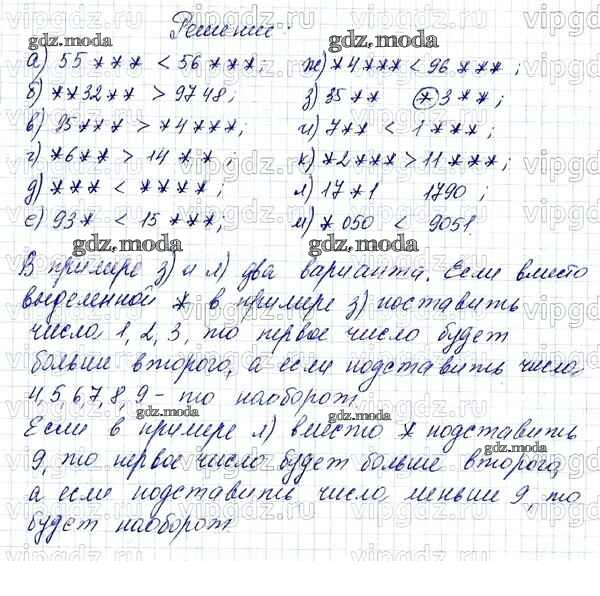 Решение.
а) 55*** < 56***;
ж) *4*** < 96***;
б) **32** > 9748;
з) 35** *3**;
в) 95*** > *4***;
и) 7** < 1***;
г) *6** > 14**;
к) *2*** > 11***;
д) *** < ****;
л) 17*1 1790;
е) 93* < 15***;
м) *050 < 9051.
В примере з) и л) два варианта. Если вместо
выделенной * в примере з) поставить
числа 1, 2, 3, то первое число будет
больше второго, а если подставить числа
4, 5 6 7, 8, 9 - то наоборот.
Если в примере л) вместо * подставить
9, то первое число будет больше второго,
а если подставить число меньше 9, то
будет наоборот.
gdz.moda
vipgdz.ru